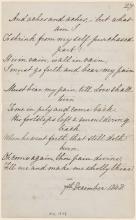 27
And aches and aches, but what
am I
To shrink from my self purchased
part?
Hem in vain, wall in vain,
I must go forth and bear my pain
Must bear my pain, till Love shall
turn
To me in pity and come back.
His footsteps left a
back
When he went forth that still doth
burn
O come again thou pain divine,
Fill me and make me wholly thine!
7th December. 1848